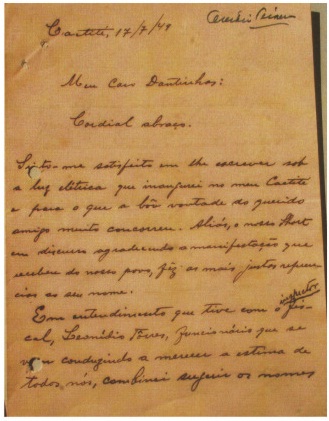 Caetité, 17/7/49
Meu Caro Dantinhas:
Cordial abraço.
Sinto-me satisfeito em lhe escrever sob
a luz elétrica que inaugurei no meu Caetité
e para o que a bôa vontade do querido
amigo muito concorreu. Aliás, o nosso
em discurso agradecendo a manifestação que
recebeu do nosso povo, fez as mais justas referen
cias ao seu nome.
inspector
Em entendimento que tive com o fis-
cal, Leonídio Pires, funcionário que se
vem conduzindo a merecer a estima de
todos nós, combinei sugerir os nomes